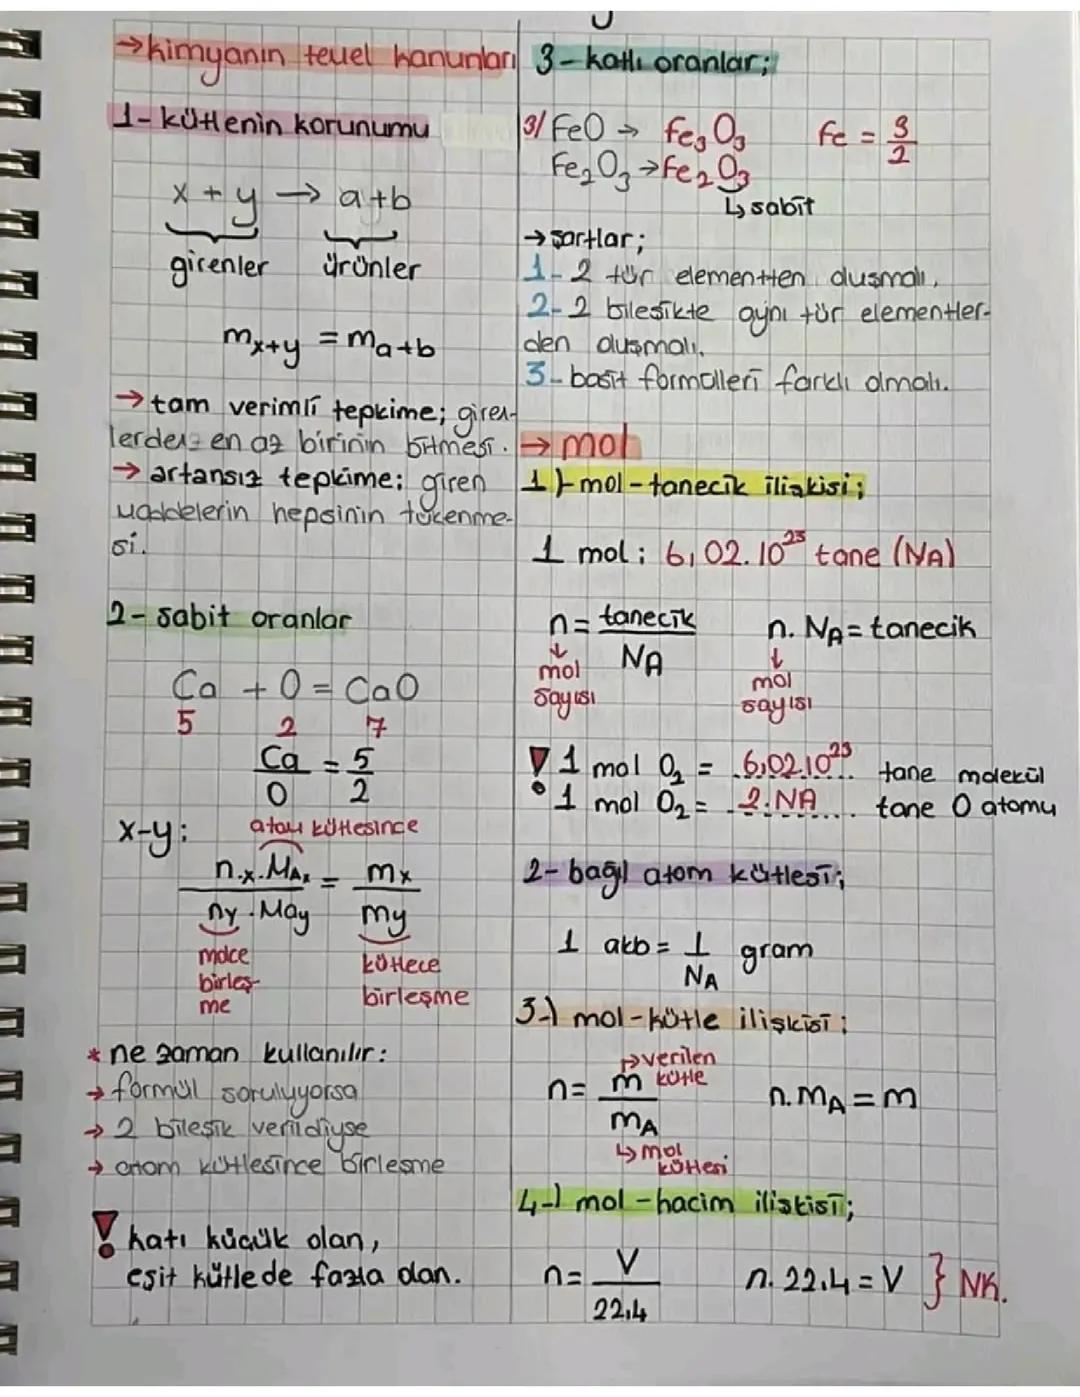 →kimyanın temel kanunları
1- kütlenin korunumu
x + y → a+b
girenler ürünler
mx+y = ma+b
→ tam verimli tepkime; giren-
lerden en az birinin bitmesi.
→ artansız tepkime: giren
maddelerin hepsinin tükenme-
si.
2- sabit oranlar
Ca + O = CaO
5 2 7
Ca/O = 5/2
x-y: atom kütlesince
nx.MAx/ny.MAy = mx/my
molce birleşme kütlece birleşme
* ne zaman kullanılır:
→ formül soruluyorsa
→ 2 bileşik verildiyse
→ atom kütlesince birleşme
! katı küçük olan,
eşit kütlede fazla olan.
3- katlı oranlar;
3/ FeO → Fe3O3 Fe = 3/2
Fe2O3 → Fe2O3
↳ sabit
→ şartlar;
1- 2 tür elementten oluşmalı.
2- 2 bileşikte aynı tür elementler-
den oluşmalı.
3- basit formülleri farklı olmalı.
→ mol
1)- mol-tanecik ilişkisi;
1 mol: 6,02.10²³ tane (NA)
n = tanecik/NA n. NA = tanecik
mol sayısı mol sayısı
! 1 mol O2 = .6,02.10²³... tane molekül
1 mol O2 = ..2.NA...... tane O atomu
2- bağıl atom kütlesi;
1 akb = 1/NA gram
3-) mol-kütle ilişkisi;
↱verilen kütle
n = m/mA n. mA = m
↳ mol kütlesi
4-) mol-hacim ilişkisi;
n = V/22,4 n. 22,4 = V } NK.